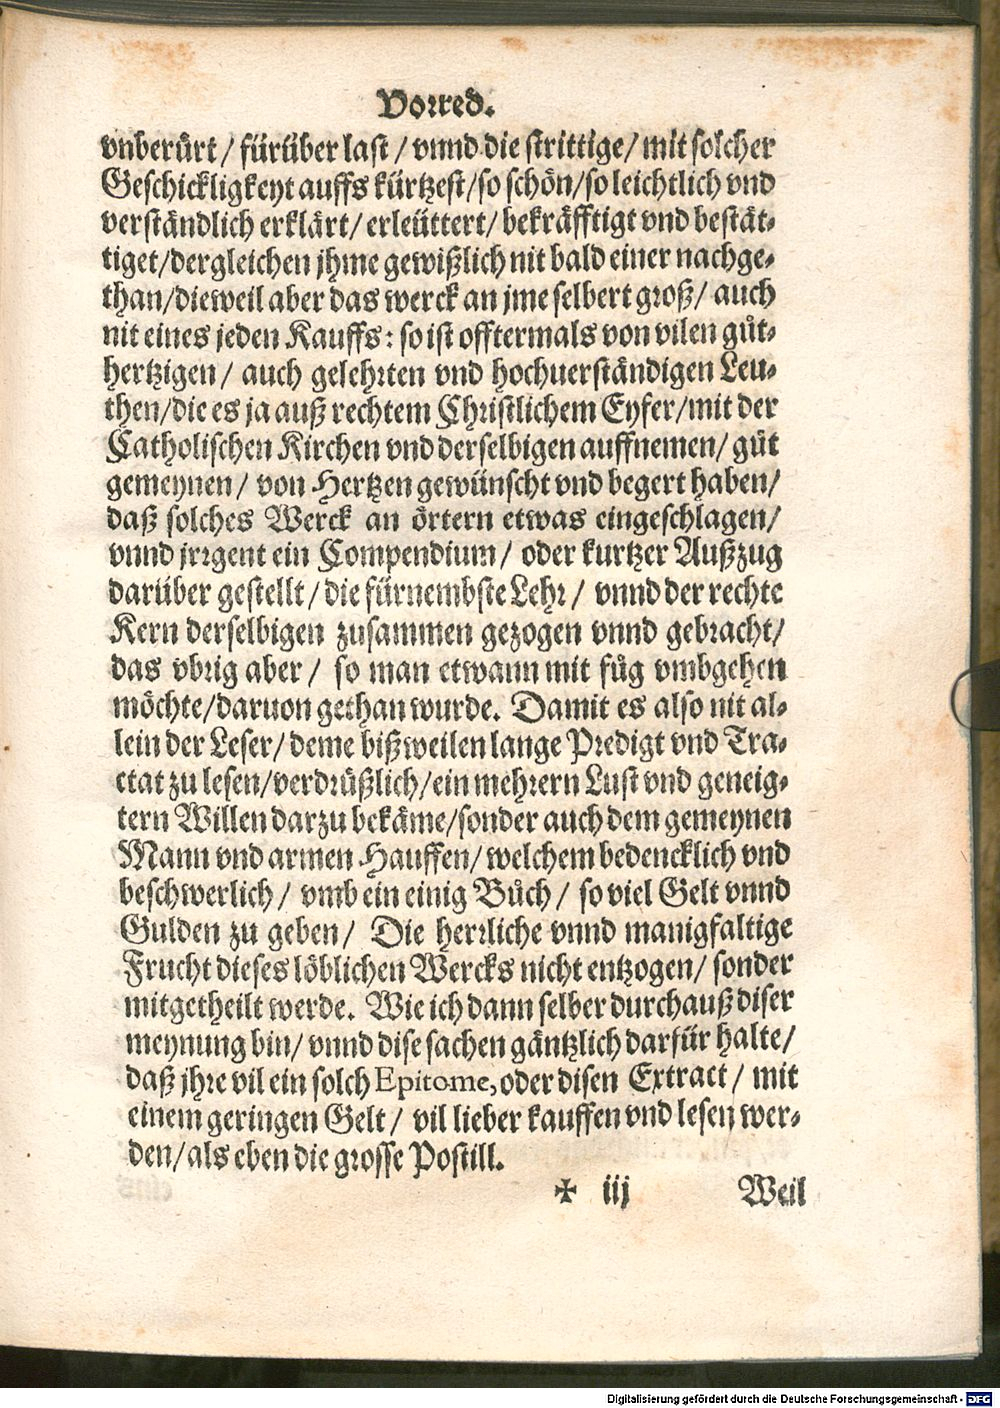 Vorred.
vnberürt / fürüber last / vnnd die strittige / mit solcher
Geschickligkeyt auffs kürtzest / so schön / so leichtlich vnd
verständlich erklärt / erleüttert / bekräfftigt vnd bestät-
tiget / dergleichen jhme gewißlich nit bald einer nachge-
than / dieweil aber das werck an jme selbert groß / auch
nit eines jeden Kauffs : so ist offtermals von vilen gůt-
hertzigen / auch gelehrten vnd hochuerständigen Leu-
then / die es ja auß rechtem Christlichem Eyfer / mit der
Catholischen Kirchen vnd derselbigen auffnemen / gůt
gemeynen / von Hertzen gewünscht vnd begert haben /
daß solches Werck an örtern etwas eingeschlagen /
vnnd jrrgent ein Compendium / oder kurtzer Außzug
darüber gestellt / die fürnembste Lehr / vnnd der rechte
Kern derselbigen zusammen gezogen vnnd gebracht /
das vbrig aber / so man etwann mit fůg vmbgehen
möchte / daruon gethan wurde. Damit es also nit al-
lein der Leser / deme bißweilen lange Predigt vnd Tra-
ctat zu lesen / verdrüßlich / ein mehrern Lust vnd geneig-
tern Willen darzu bekäme / sonder auch dem gemeynen
Mann vnd armen Hauffen / welchem bedencklich vnd
beschwerlich / vmb ein einig Bůch / so viel Gelt vnnd
Gulden zu geben / Die herrliche vnnd manigfaltige
Frucht dieses löblichen Wercks nicht entzogen / sonder
mitgetheilt werde. Wie ich dann selber durchauß diser
meynung bin / vnnd dise sachen gäntzlich darfür halte /
daß jhre vil ein solch Epitome, oder disen Extract / mit
einem geringen Gelt / vil lieber kauffen vnd lesen wer-
den / als eben die grosse Postill.
✠ iij Weil
Digitalisierung gefördert durch die Deutsche Forschungsgemeinschaft - DFG